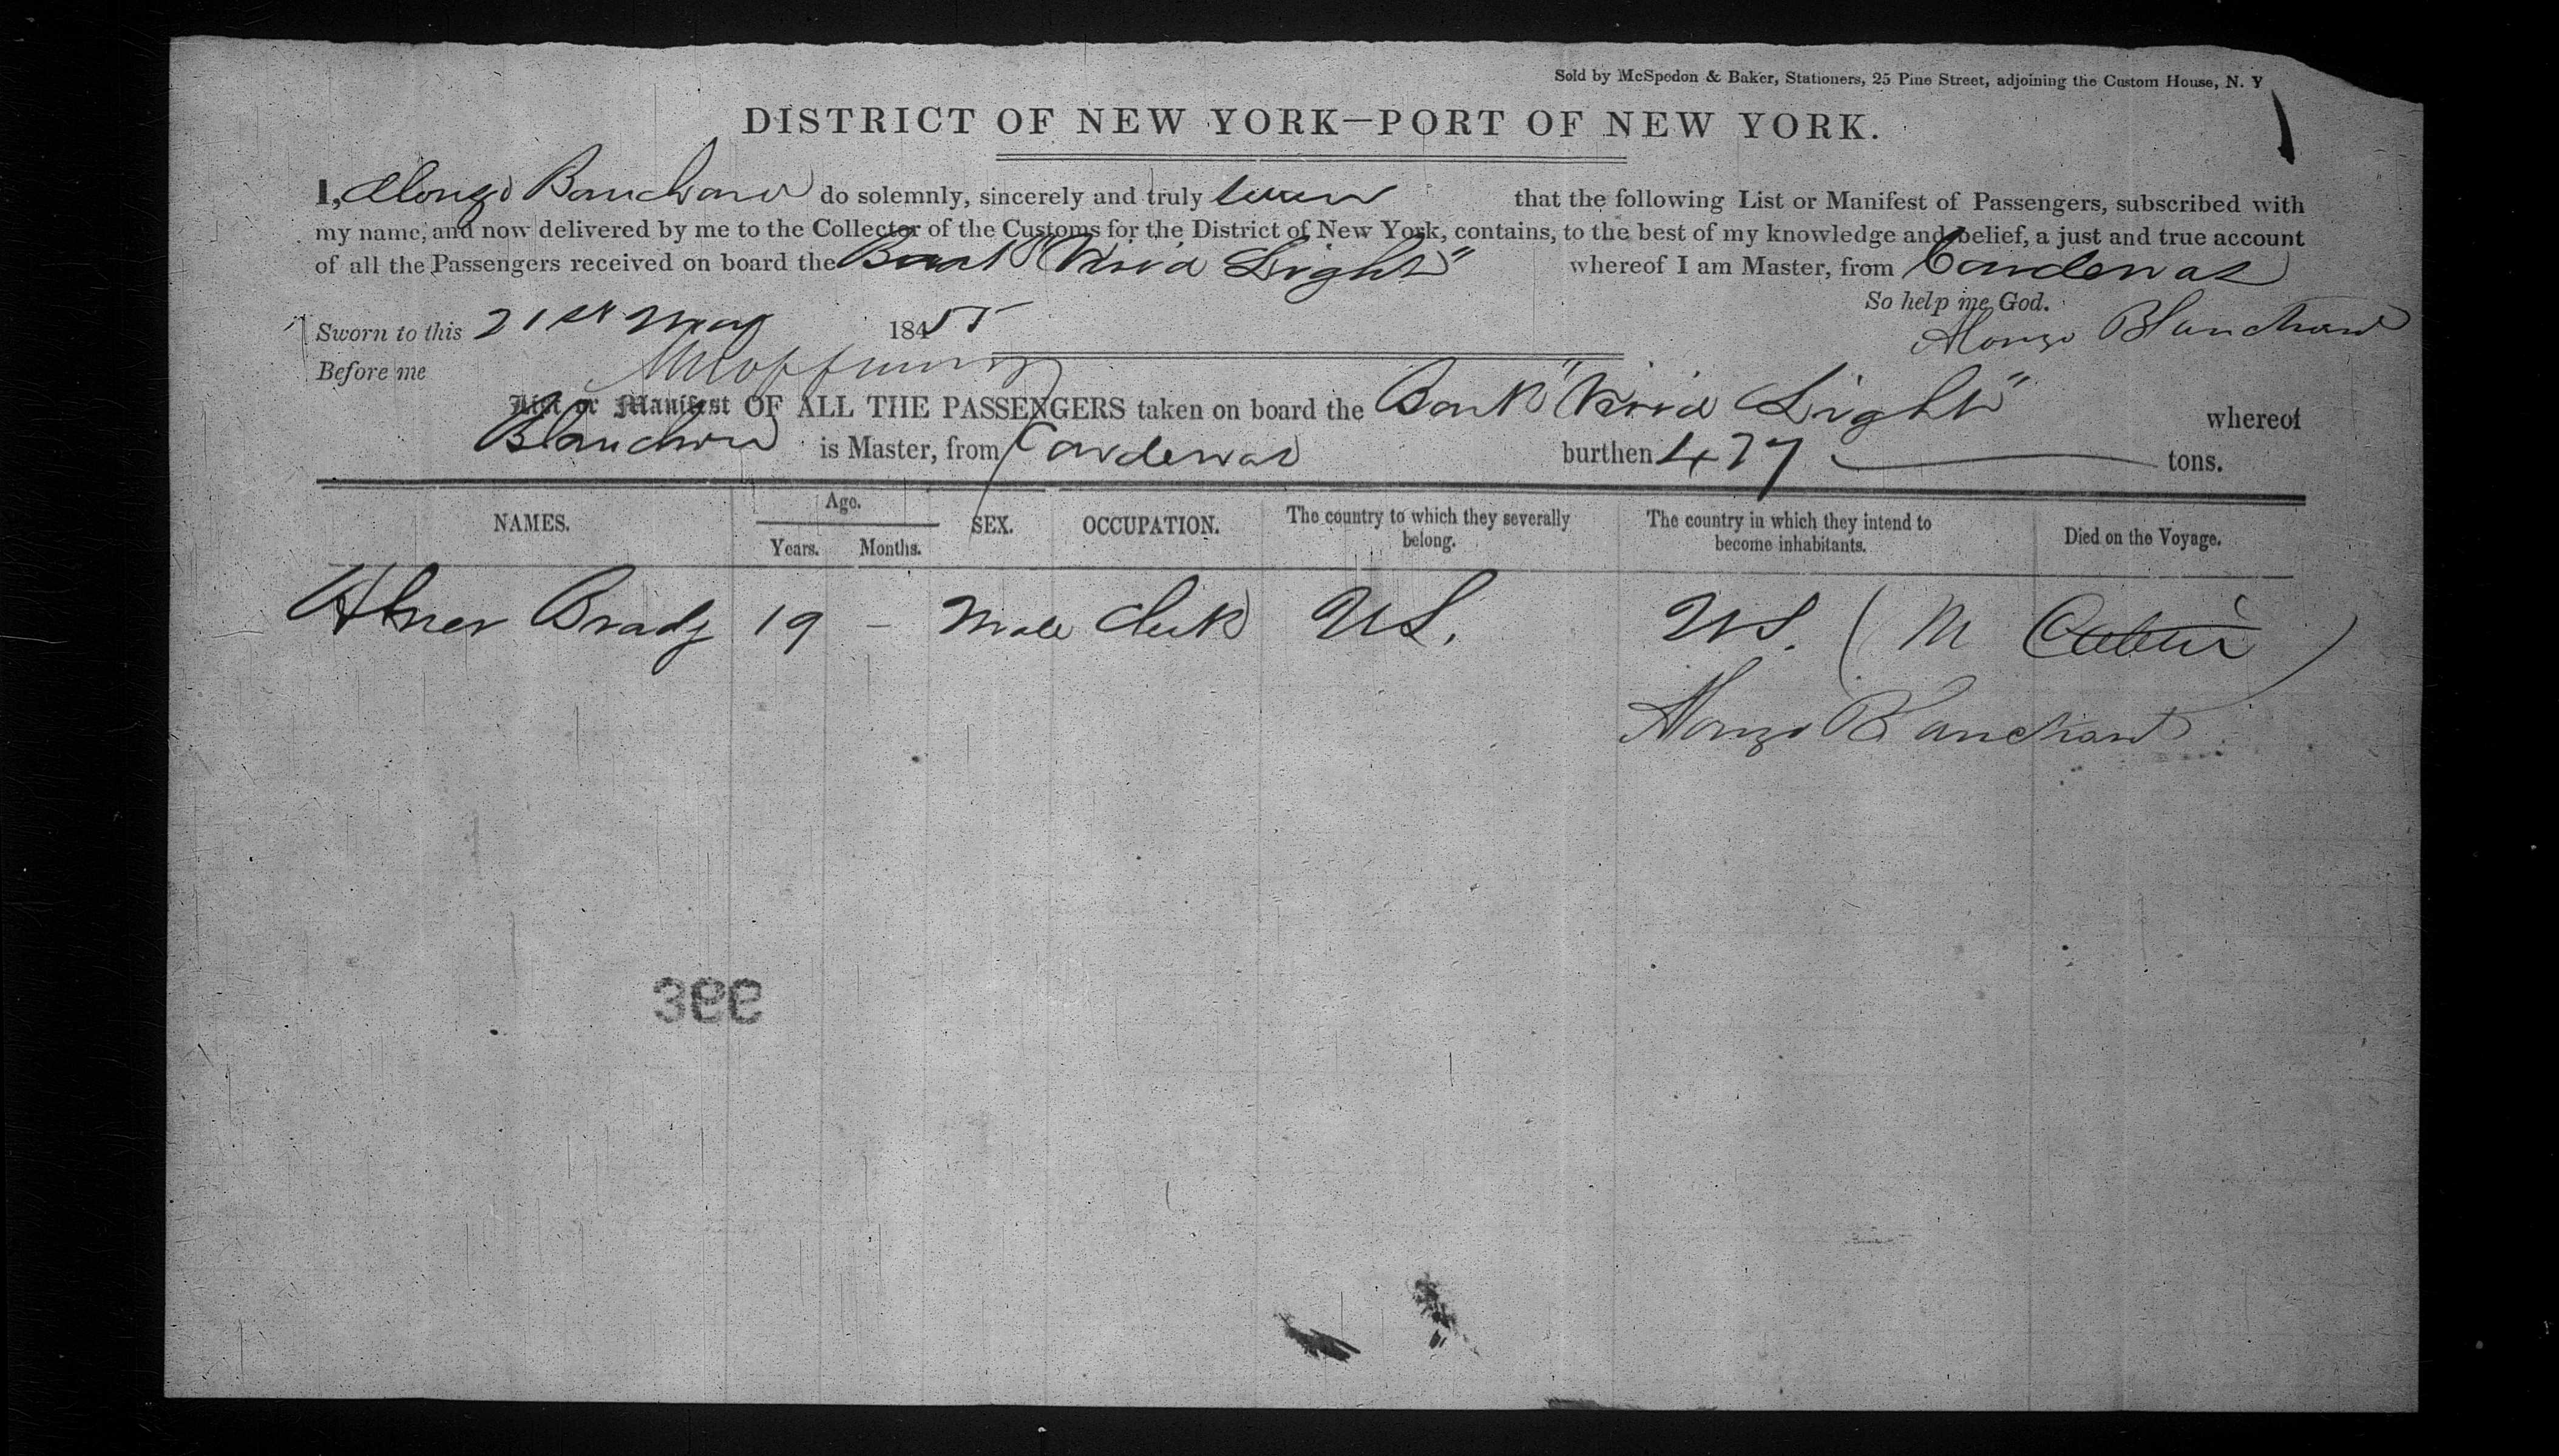 Sold by McSpedon & Baker, Stationers, 25 Pine Street, adjoining the Custom House, N. Y
DISTRICT OF NEW YORK—PORT OF NEW YORK.
I, Alonzo Banchard do solemnly, sincerely and truly swear that the following List or Manifest of Passengers, subscribed with
my name, and now delivered by me to the Collector of the Customs for the District of New York, contains, to the best of my knowledge and belief, a just and true account
of all the Passengers received on board the Bark "Vivid Light" whereof I am Master, from Cardenas
So help me God.
Sworn to this 21st May 1855 Alonzo Blanchard
Before me
List or Manifest OF ALL THE PASSENGERS taken on board the Bark "Vivid Light" whereof
Blanchard is Master, from Cardenas burthen 477 tons.
NAMES. Age. Years. Months. SEX. OCCUPATION. The country to which they severally belong. The country in which they intend to become inhabitants. Died on the Voyage.
Abner Brady 19 - Male Clerk US. US. (In Cabin)
Alonzo Blanchard
399